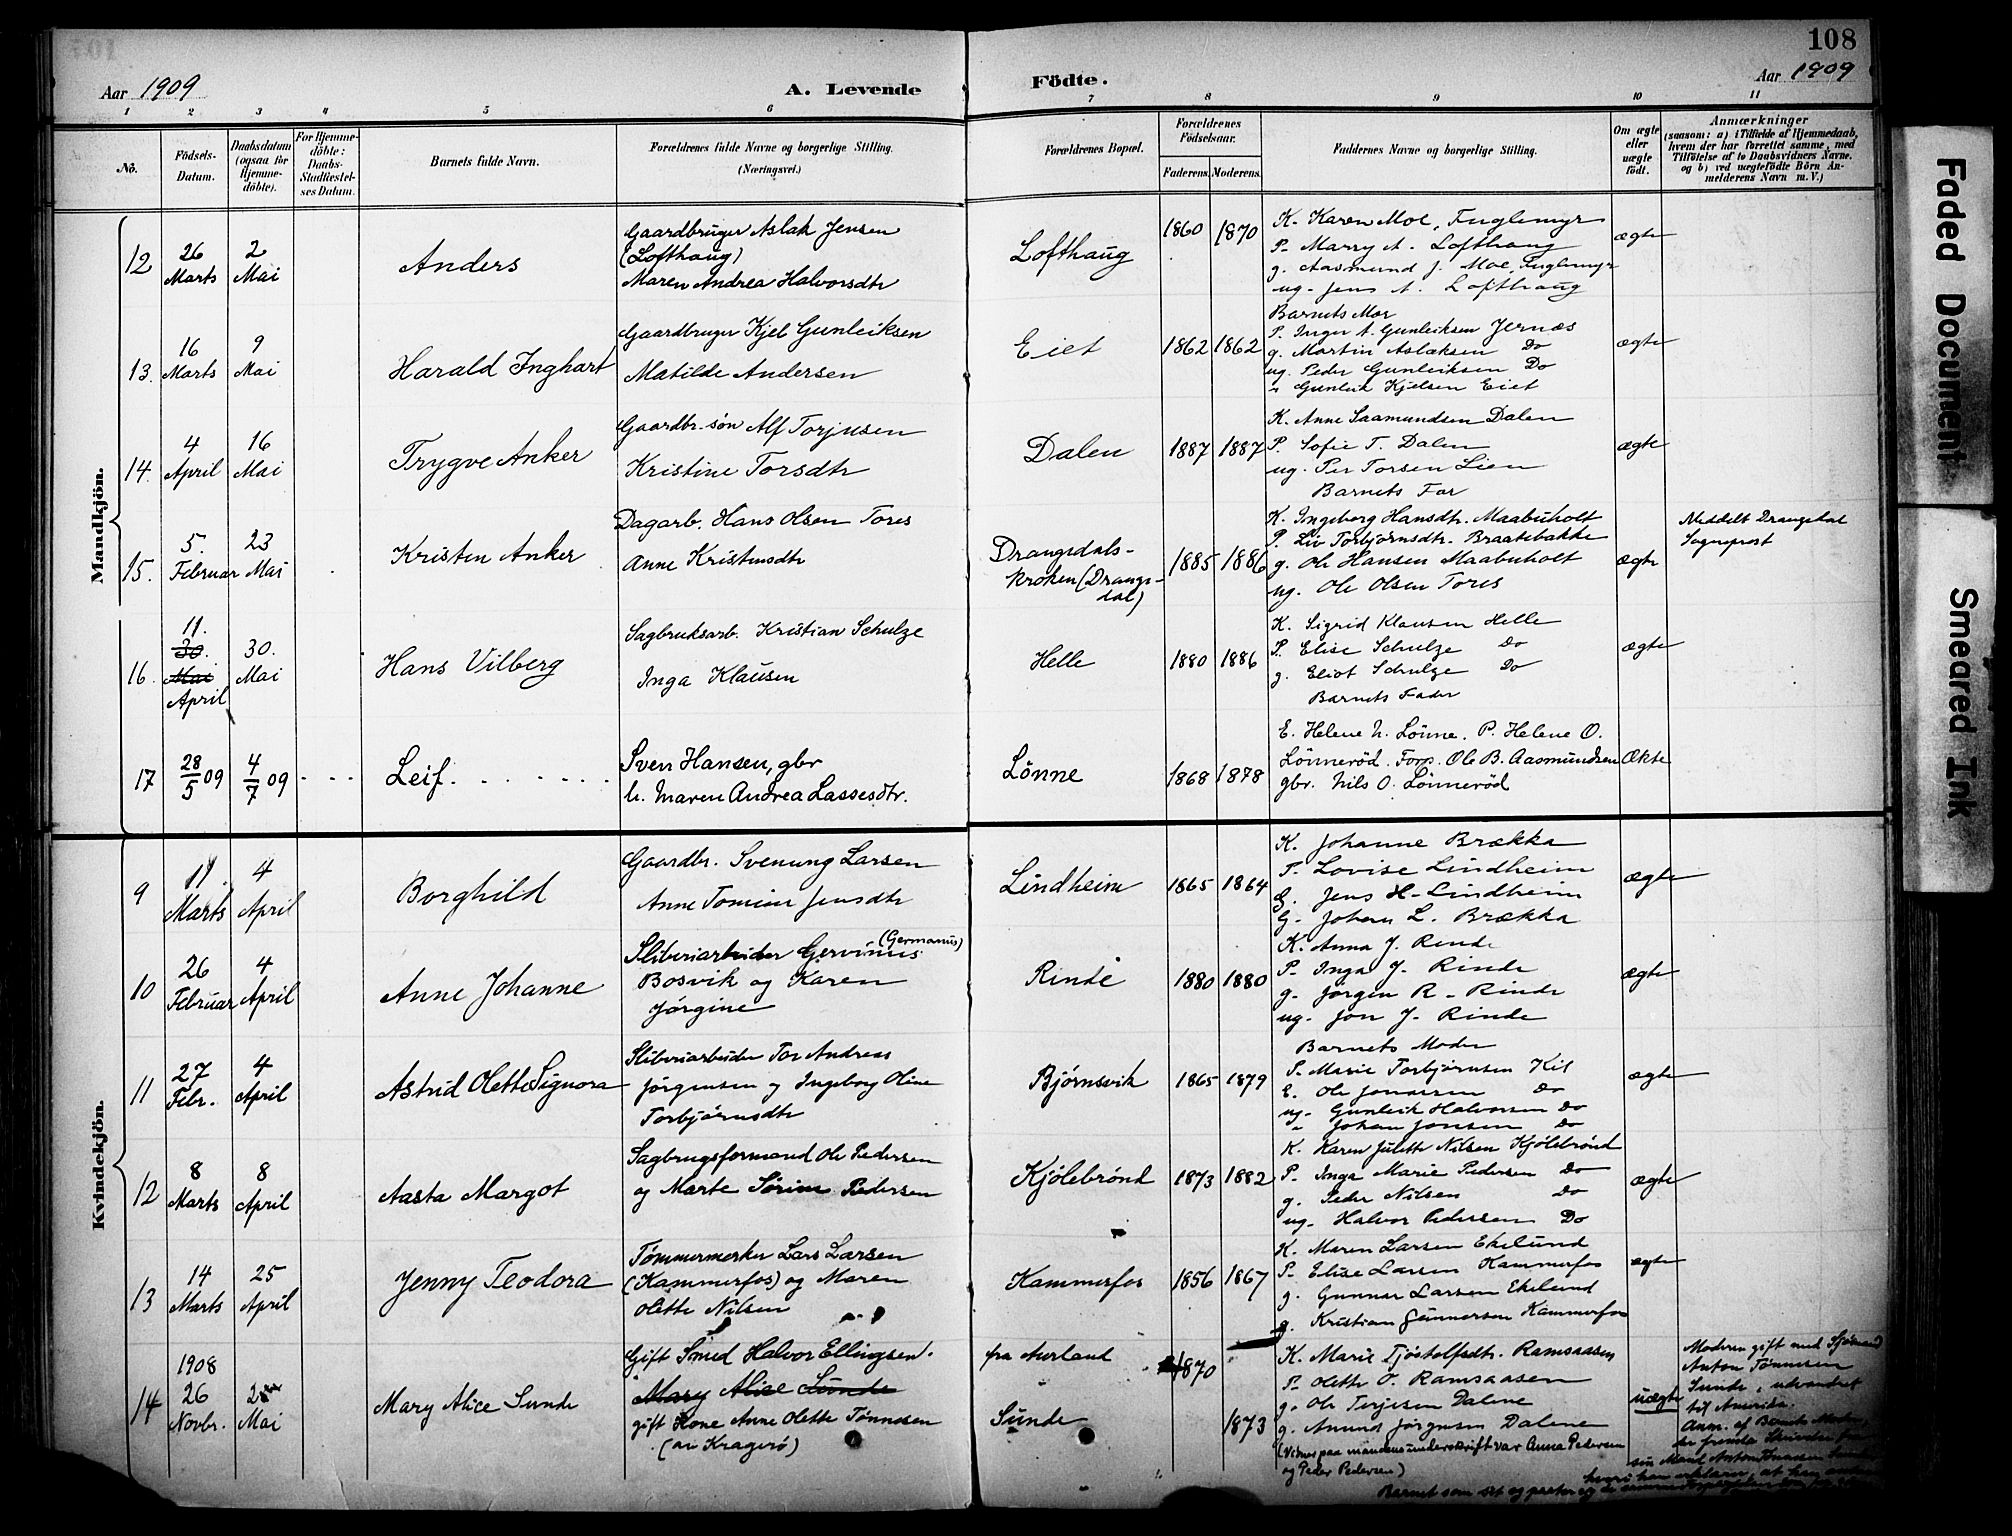 107
108
Aar 1909
A. Levende
Födte.
Aar 1909
1 2 3 4 5 6 7 8 9 10 11
No.
Födsels-Datum.
Daabsdatum (ogsaa for Hjemmedöbte).
For Hjemmedöbte: Daabs-Stadfæstelses Datum.
Barnets fulde Navn.
Forældrenes fulde Navne og borgerlige Stilling.
(Næringsvei.)
Forældrenes Bopæl.
Forældrenes Födselsaar.
Faderens. Moderens.
Faddernes Navne og borgerlige Stilling.
Om ægte eller uægte födt.
Anmærkninger
(saasom: a) i Tilfælde af Hjemmedaab, hvem der har forrettet samme, med Tilföielse af to Daabsvidners Navne, og b) ved uægtefödte Börn Anmelderens Navn m. V.)
Mandkjön.
12
26 Marts
2 Mai
Anders
Gaardbruger Aslak Jensen
(Lofthaug)
Maren Andrea Halvorsdtr
Lofthaug
1860 1870
K. Karen Moe, Fuglemyr
P. Marry A. Lofthaug
g. Aasmund J. Moe, Fuglemyr
ug. Jens A. Lofthaug
ægte
13.
16 Marts
9 Mai
Harald Inghart
Gaardbruger Kjel Gunleiksen
Matilde Andersen
Eiet
1862 1862
Barnets Mor
P. Inger A. Gunleiksen Jernæs
g. Martin Aslaksen Do
ug. Peder Gunleiksen Do
" Gunleik Kjelsen Eiet
ægte
14.
4 April
16 Mai
Trygve Anker
Gaardbr. søn Alf Torjusen
Kristine Torsdtr
Dalen
1887 1887
K. Anne Saamundsen Dalen
P. Sofie T. Dalen
ug. Per Torsen Lien
Barnets Far
ægte
15.
5. Februar
23 Mai
Kristen Anker
Dagarb. Hans Olsen Tores
Anne Kristensdtr
Drangedals-
kroken (Drange-
dal)
1885 1886
K. Ingeborg Hansdtr. Maabuholt
P. Liv Torbjørnsdtr. Braatebakke
g. Ole Hansen Maabuholt
ug. Ole Olsen Tores
ægte
Meddelt Drangedal
Sogneprest
16.
11.
30.
Mai
April
30. Mai
Hans Vilberg
Sagbruksarb. Kristian Schulze
Inga Klausen
Helle
1880 1886
K. Sigrid Klausen Helle
P. Elise Schulze Do
g. Eliot Schulze Do
Barnets Fader
ægte
17
28/5 09
4/7 09
Leif.
Sven Hansen, gbr
h. Maren Andrea Lassesdtr.
Lönne
1868 1878
E. Helene N. Lönne. P. Helene O.
Lönneröd. Forp. Ole B. Aasmundsen
gbr. Nils O. Lönneröd
Ækte
Kvindekjön.
9
11. Marts
4 April
Borghild
Gaardbr. Svenung Larsen
Anne Tomine Jensdtr
Lindheim
1865 1864
K. Johanne Brækka
P. Lovise Lindheim
G. Jens H. Lindheim
G. Johan L. Brækka
ægte
10
26 Februar
4 April
Anne Johanne
(Germanus)
Sliberiarbeider Gervinus
Bosvik og Karen
Jørgine
Rinde
1880 1880
K. Anna J. Rinde
P. Inga J. Rinde
g. Jørgen R. Rinde
ug. Jon J. Rinde
ægte
11
27 Febr.
4 April
Astrid Olette Signora
Sliberiarbeider Tor Andreas
Jørgensen og Ingeborg Oline
Torbjørnsdtr
Bjørnsvik
1865 1879
Barnets Moder
P. Marie Torbjørnsen Kil
E. Ole Jonassen Do
ug. Gunleik Halvorsen Do
" Johan Jonsen Do
ægte
12
8 Marts
8 April
Aasta Margot
Sagbrugsformand Ole Pedersen
og Marte Sørine Pedersen
Kjølebrønd
1873 1882
K. Karen Julette Nilsen Kjølebrønd
P. Inga Marie Pedersen Do
g. Peder Nilsen Do
ug. Halvor Pedersen Do
ægte
13
14 Marts
25 April
Jenny Teodora
Tømmermerker Lars Larsen
(Kammerfos) og Maren
Olette Nilsen
Kammerfos
1856 1867
K. Maren Larsen Ekelund
P. Elise Larsen Kammerfos
g. Gunnar Larsen Ekelund
g. Kristian Gunnersen Kammerfos
ægte
14
1908
26 Novbr.
Mai
Mary Alice Sunde
Gift Smed Halvor Ellingsen.
Mary Alice Sunde
gift Kone Anne Olette Tønnesen
(av Kragerø)
fra Aurland
Sunde
1870
1873
K. Marie Tjøstolfsdtr. Ramsaasen
P. Olette O. Ramsaasen
g. Ole Terjesen Dalene
g. Amund Jørgensen Dalene
(Vidner paa mandens underskrift var Anna Pedersen
og Peder Pedersen)
uægte
Moderen gift med Sjømand
Anton Tønnesen
Sunde, udvandret
til Amerika.
Anm. af Barnets Moder,
Faded Document
Smeared Ink